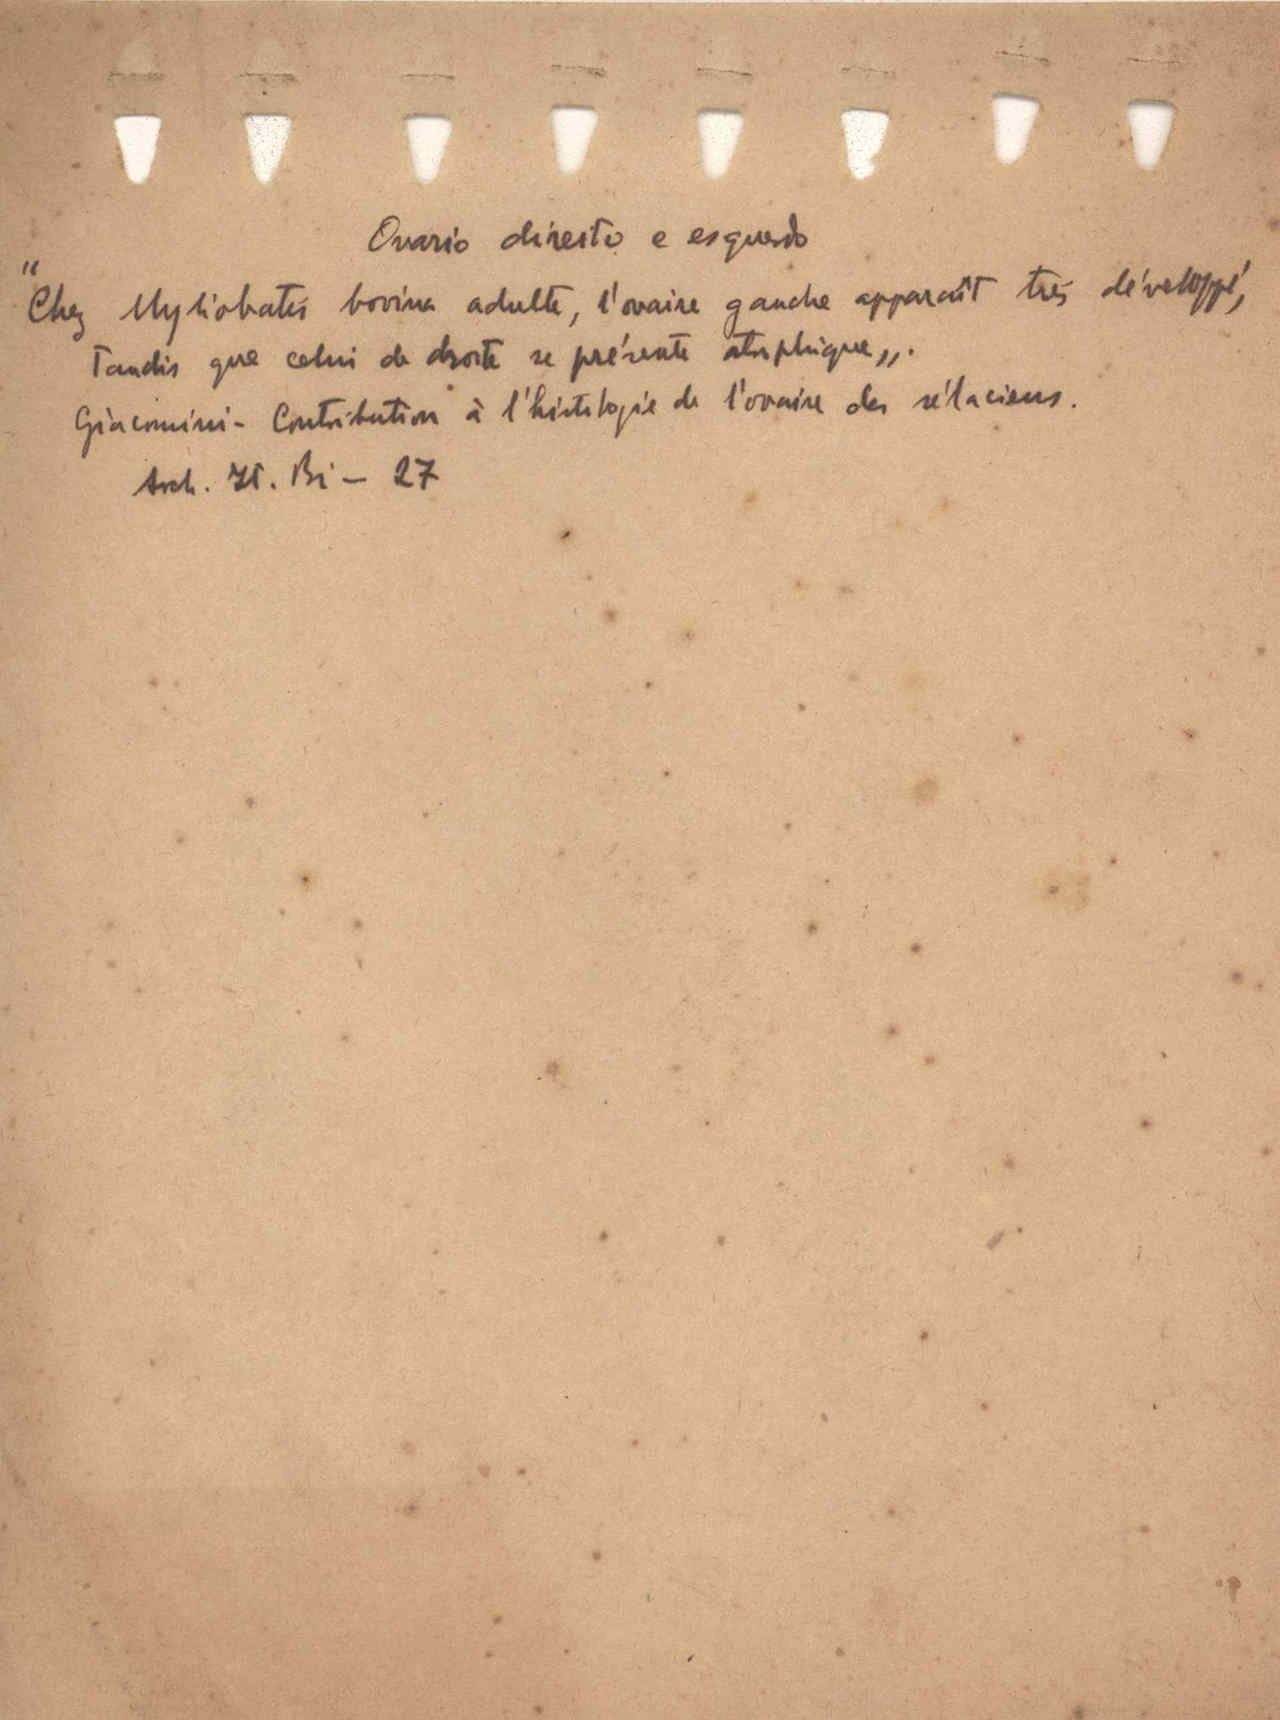 Ovario direito e esquerdo
"Chez Myliobatis bovina adulte, l'ovaire gauche apparaît très développé,
tandis que celui de droite se présente atrophique,,.
Giacomini - Contribution à l'histologie de l'ovaire des sélaciens.
Arch. It. Bi - 27